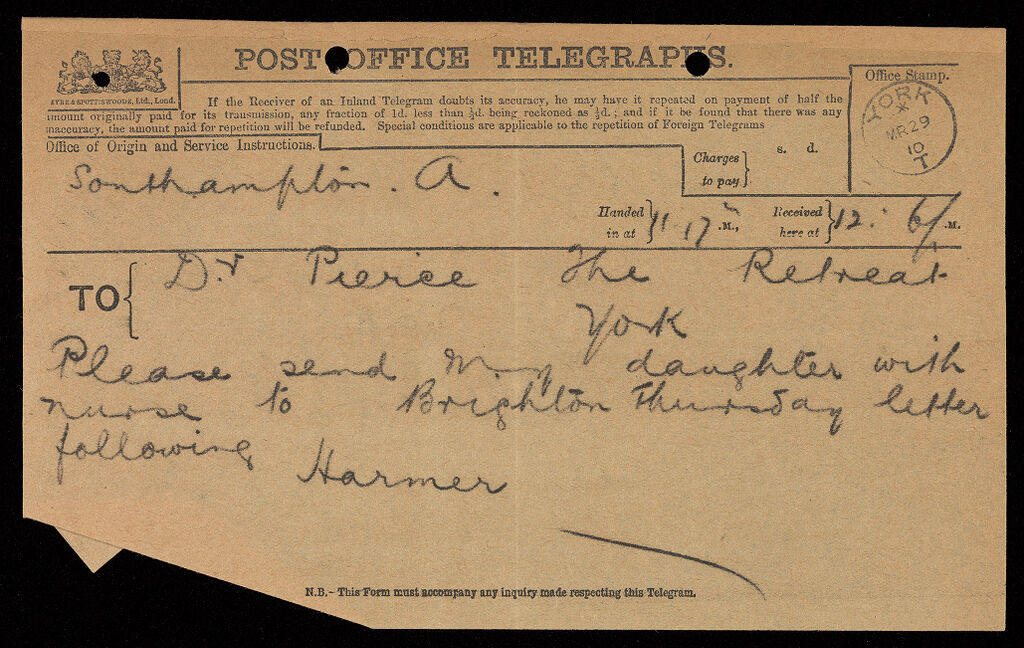 POST OFFICE TELEGRAPHS.
EYRE & SPOTTISWOODE, Ltd., Lond.
If the Receiver of an Inland Telegram doubts its accuracy, he may have it repeated on payment of half the
amount originally paid for its transmission, any fraction of 1d. less than ½d. being reckoned as ½d.; and if it be found that there was any
inaccuracy, the amount paid for repetition will be refunded. Special conditions are applicable to the repetition of Foreign Telegrams
Office Stamp.
YORK
MR 29
10
T
Office of Origin and Service Instructions.
Charges to pay } s. d.
Southampton. A.
Handed in at } 11.17 .M., Received here at } 12. 6 .M.
TO { Dr Pierce The Retreat
York
Please send my daughter with
nurse to Brighton Thursday letter
following
Harmer
N.B.- This Form must accompany any inquiry made respecting this Telegram.